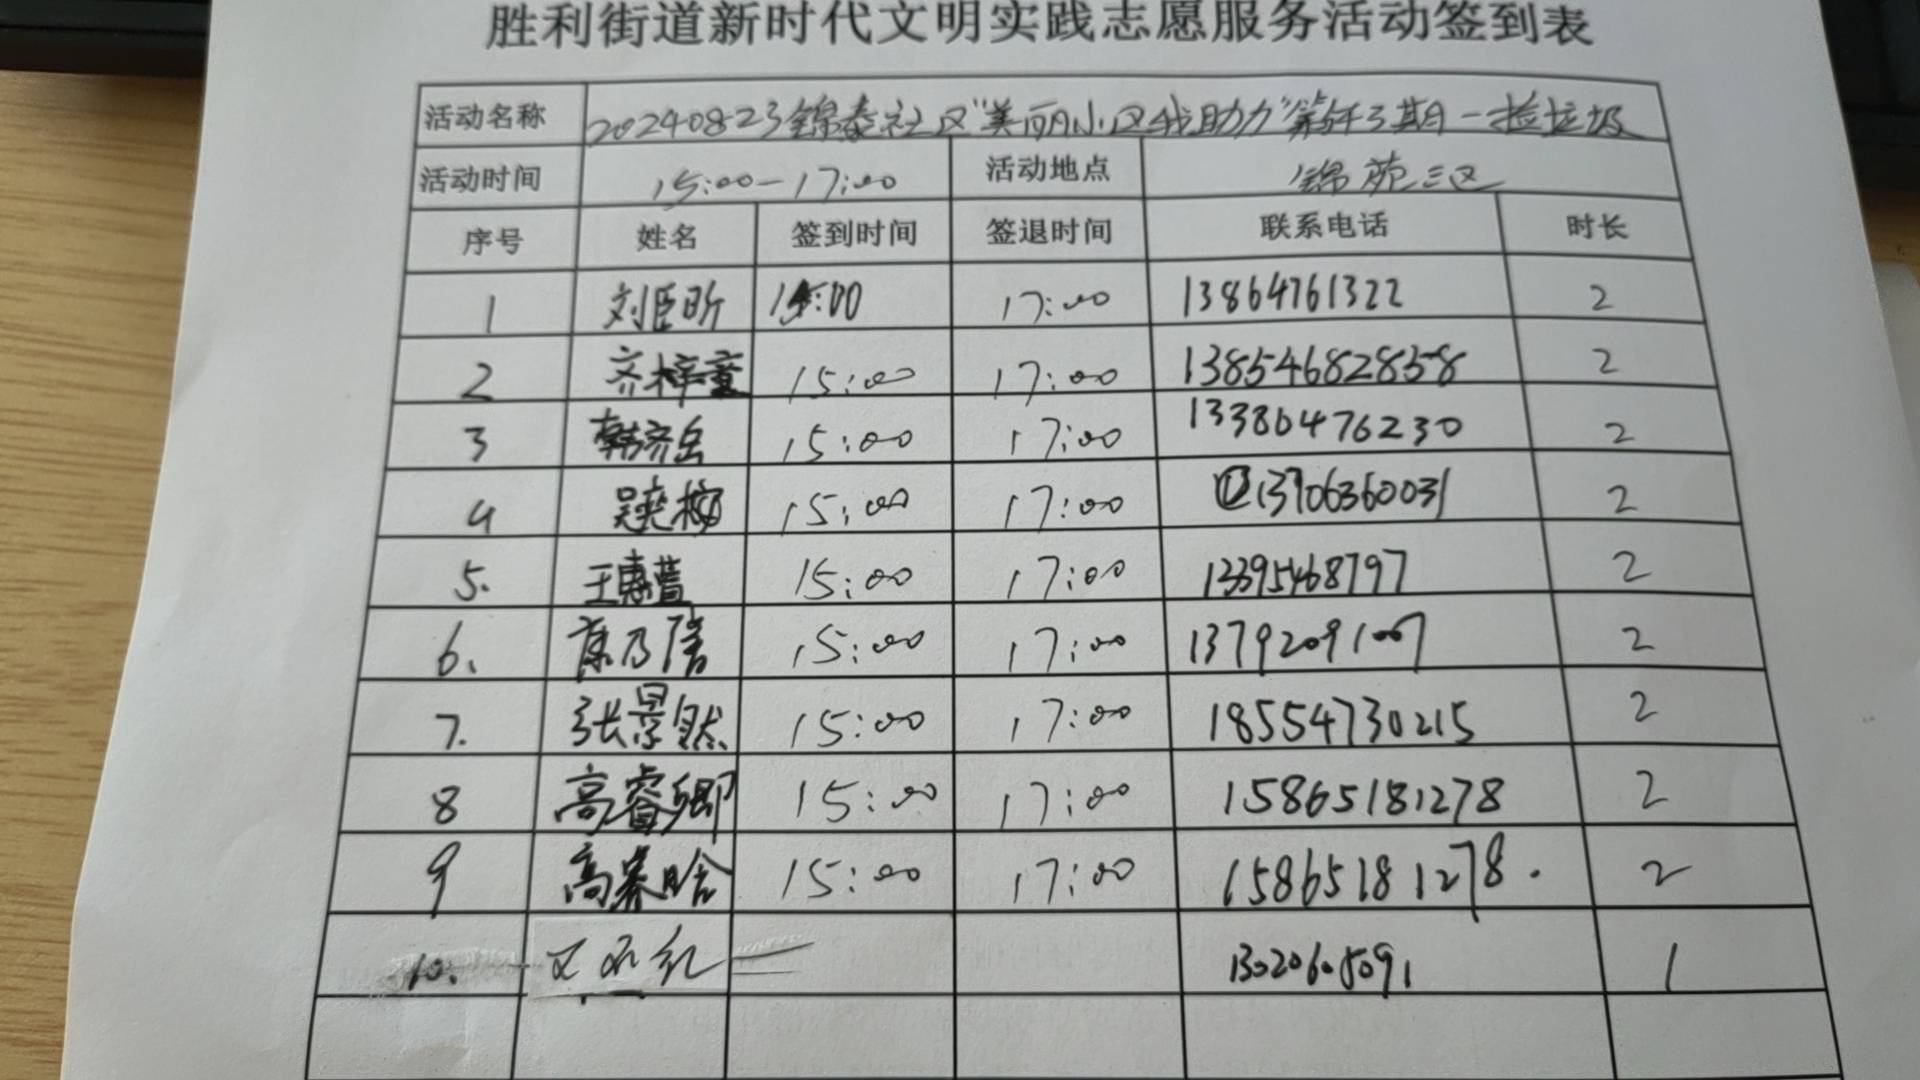 胜利街道新时代文明实践志愿服务活动签到表
活动名称 20240823锦泰社区“美丽小区我助力”第 期-捡垃圾
活动时间 15:00-17:00 活动地点 锦苑三区
序号 姓名 签到时间 签退时间 联系电话 时长
1 刘臣昕 15:00 17:00 13864761322 2
2 齐梓童 15:00 17:00 13854682858 2
3 韩齐岳 15:00 17:00 13386476230 2
4 吴奕 15:00 17:00 13706360031 2
5. 王惠萱 15:00 17:00 13395468797 2
6. 乃 15:00 17:00 13792091007 2
7. 张景然 15:00 17:00 18554730215 2
8 高睿卿 15:00 17:00 15865181278 2
9 高 晗 15:00 17:00 15865181278. 2
10. 红 13020605091 1